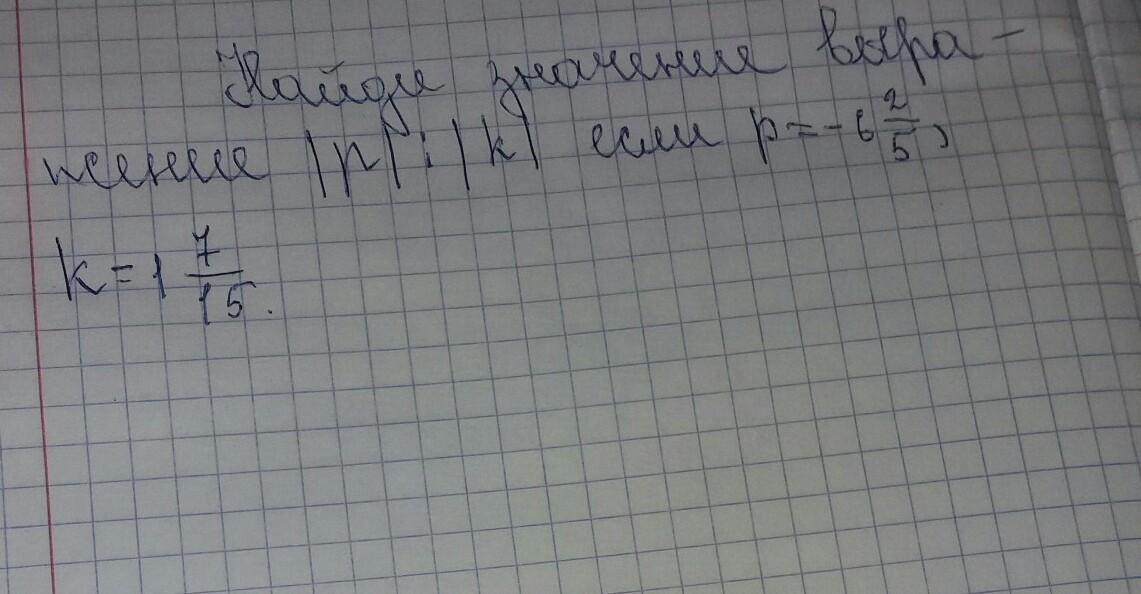 Найди значение выра-
жение |p| : |k| если p = -6 2/5,
k = 1 7/15.